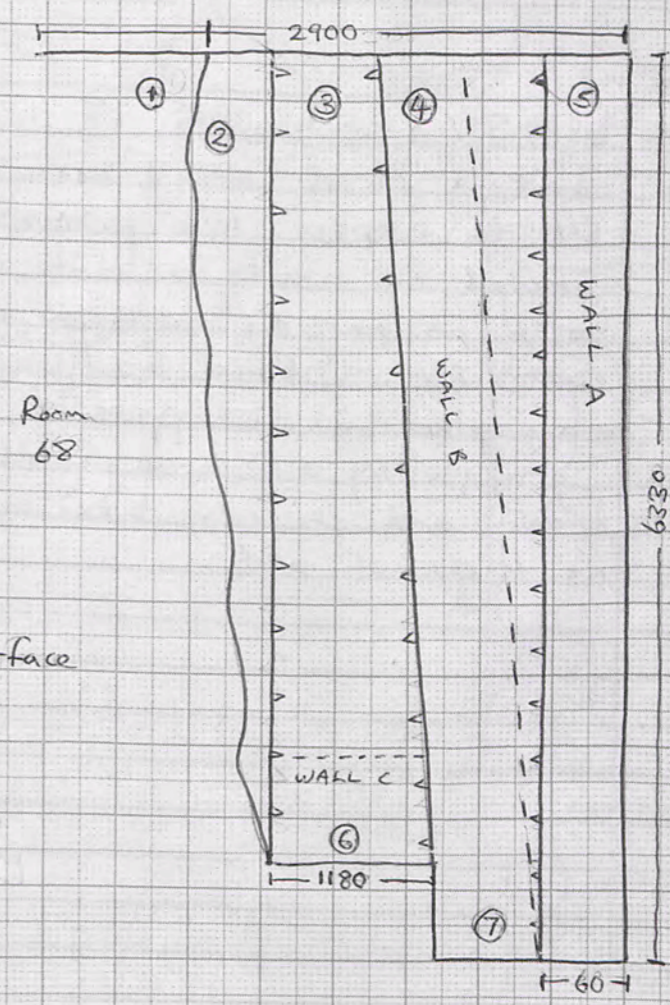 2900
① ② ③ ④ ⑤
WALL A
WALL B
Room
68
6330
face
WALL C
⑥
1180
⑦
60